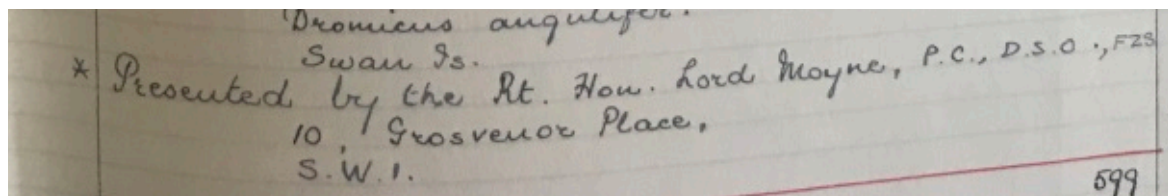 Dromicus angulifer.
Swan Is.
* Presented by the Rt. Hon. Lord Moyne, P.C., D.S.O., FZS
10, Grosvenor Place,
S.W.1.
599